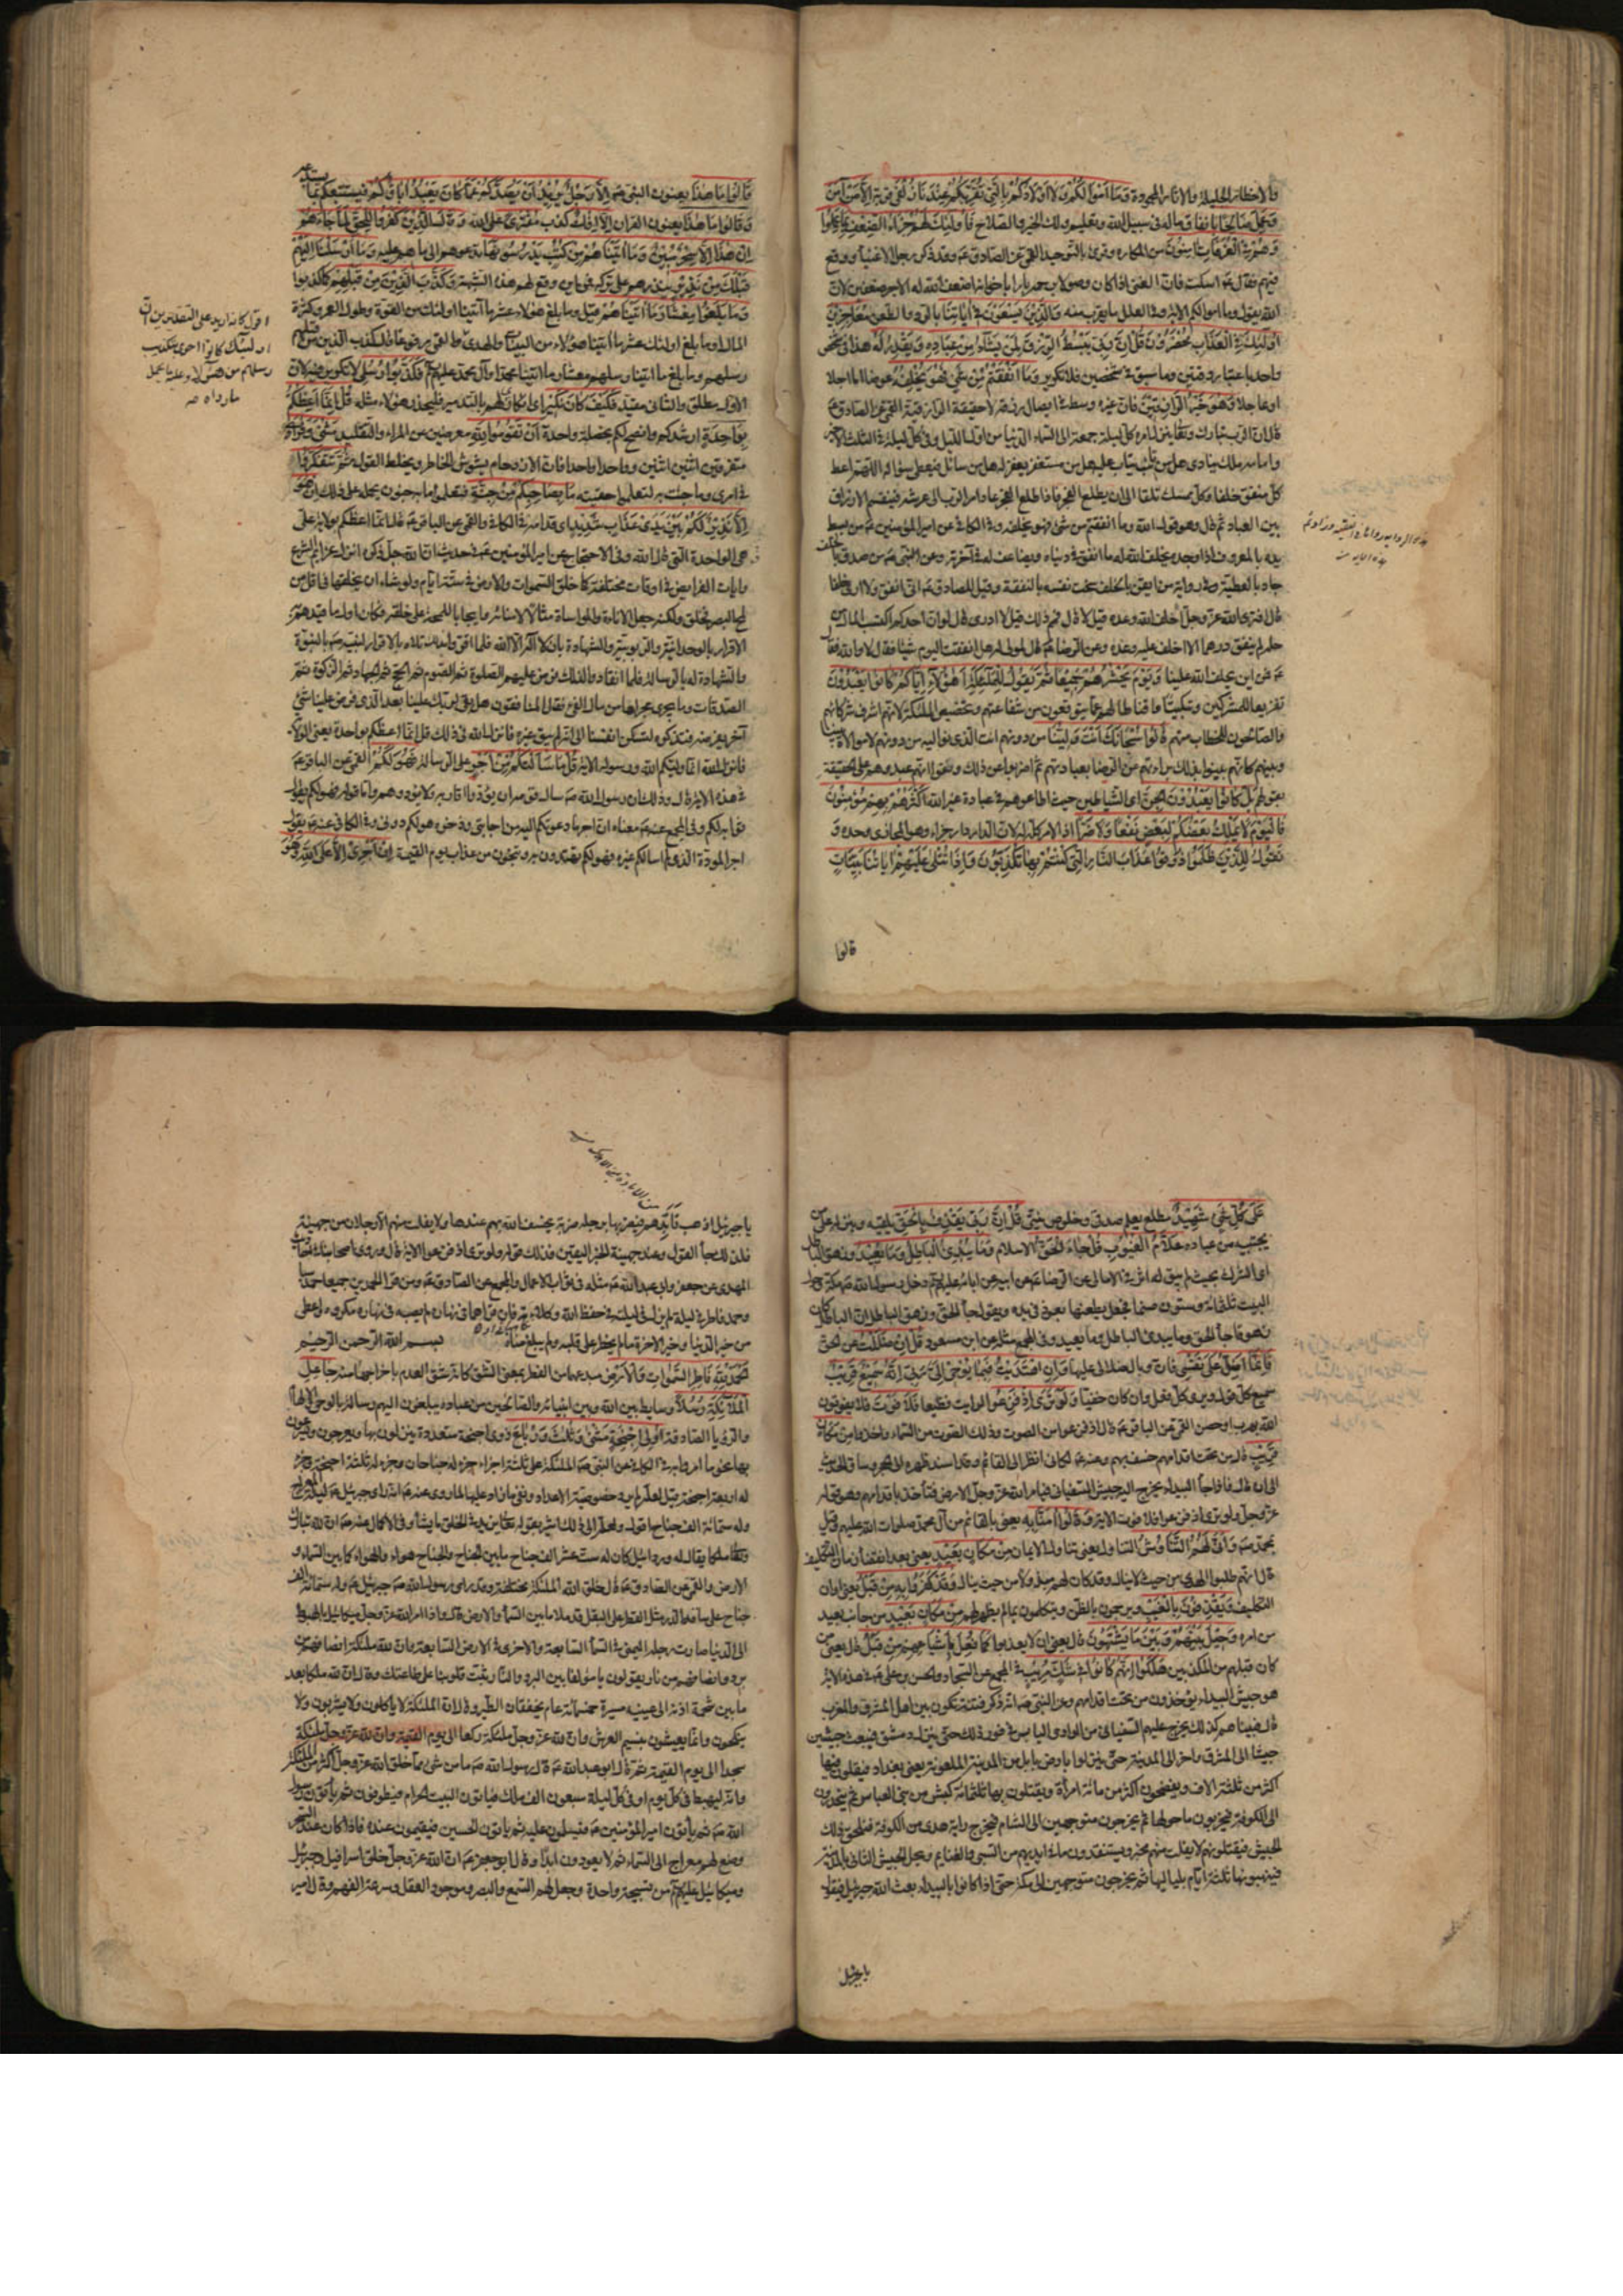 والاخطار الجليلة ولا تار المحمودة وَمَا أَمْوَالُكُمْ وَلَا أَوْلَادُكُمْ بِالَّتِي تُقَرِّبُكُمْ عِنْدَنَا زُلْفَى قربة إِلَّا مَنْ آمَنَ
وَعَمِلَ صَالِحًا بانفاق ماله في سبيل الله وتعليم ولده الخير والصلاح فَأُولَئِكَ لَهُمْ جَزَاءُ الضِّعْفِ بِمَا عَمِلُوا
وَهُمْ فِي الْغُرُفَاتِ آمِنُونَ من المكاره وقرئ بالتوحيد القمي عن الصادق ع وقد ذكر رجل الاغنياء ووقع
فيهم فقال ع اسكت فان الغني اذا كان وصولا برحمه بارا باخوانه اضعف الله له الاجر ضعفين لان
الله يقول وما اموالكم الاية وفي العلل ما يقرب منه وَالَّذِينَ يَسْعَوْنَ فِي آيَاتِنَا بالرد والطعن مُعَاجِزِينَ
أُولَئِكَ فِي الْعَذَابِ مُحْضَرُونَ قُلْ إِنَّ رَبِّي يَبْسُطُ الرِّزْقَ لِمَنْ يَشَاءُ مِنْ عِبَادِهِ وَيَقْدِرُ لَهُ هذا في شخص
واحد باعتبار وقتين وما سبق في شخصين فلا تكرير وَمَا أَنْفَقْتُمْ مِنْ شَيْءٍ فَهُوَ يُخْلِفُهُ عوضا اما عاجلا
او عاجلا وَهُوَ خَيْرُ الرَّازِقِينَ فان غيره وسط في ايصال رزقه لا حقيقة لرازقيته القمي عن الصادق ع
قال ان الرب تبارك وتعالى ينزل امره كل ليلة جمعة الى السماء الدنيا من اول الليل وفي كل ليلة في الثلث الاخير
وامامه ملك ينادي هل من تائب يتاب عليه هل من مستغفر يغفر له هل من سائل فيعطى سؤاله اللهم اعط
كل منفق خلفا وكل ممسك تلفا الى ان يطلع الفجر فاذا طلع الفجر عاد امر الرب الى عرشه فيقسم الارزاق
بين العباد ثم قال وهو قول الله وما انفقتم من شئ فهو يخلفه وفي الكافي عن امير المؤمنين ع من بسط
يده بالمعروف اذا وجده يخلف الله له ما انفق في دنياه ويضاعف له في آخرته وعن النبي ص من صدق بالخلف
جاد بالعطية وفي رواية من ايقن بالخلف سخت نفسه بالنفقة وقيل للصادق ع اني انفق ولا ارى خلفا
قال افترى الله عز وجل اخلف وعده قيل لا قال فمم ذلك قيل لا ادري قال لو ان احدكم اكتسب المال من
حله لم ينفق درهما الا اخلف عليه وعده وعن الرضا ع قال لمولى له هل انفقت اليوم شيئا فقال لا والله فقال
ع فمن اين يخلف الله علينا وَيَوْمَ يَحْشُرُهُمْ جَمِيعًا ثُمَّ يَقُولُ لِلْمَلَائِكَةِ أَهَؤُلَاءِ إِيَّاكُمْ كَانُوا يَعْبُدُونَ
تقريعا للمشركين وتبكيتا واقناطا لهم عما يتوقعون من شفاعتهم وتخصيص الملئكة لانهم اشرف شركائهم
والصالحون للخطاب منهم قَالُوا سُبْحَانَكَ أَنْتَ وَلِيُّنَا مِنْ دُونِهِمْ انت الذي نواليه من دونهم لا موالاة بيننا
وبينهم كانهم بينوا بذلك براءتهم من الرضا بعبادتهم ثم اضربوا عن ذلك ونفوا انهم عبدوهم على الحقيقة
بقولهم بَلْ كَانُوا يَعْبُدُونَ الْجِنَّ اى الشياطين حيث اطاعوهم في عبادة غير الله أَكْثَرُهُمْ بِهِمْ مُؤْمِنُونَ
فَالْيَوْمَ لَا يَمْلِكُ بَعْضُكُمْ لِبَعْضٍ نَفْعًا وَلَا ضَرًّا اذ الامر كله له لان الدار دار جزاء وهو المجازي وحده وَ
نَقُولُ لِلَّذِينَ ظَلَمُوا ذُوقُوا عَذَابَ النَّارِ الَّتِي كُنْتُمْ بِهَا تُكَذِّبُونَ وَإِذَا تُتْلَى عَلَيْهِمْ آيَاتُنَا بَيِّنَاتٍ
قالوا
قَالُوا مَا هَذَا يعنون النبي ص إِلَّا رَجُلٌ يُرِيدُ أَنْ يَصُدَّكُمْ عَمَّا كَانَ يَعْبُدُ آبَاؤُكُمْ فيستتبعكم بما
وَقَالُوا مَا هَذَا يعنون القران إِلَّا إِفْكٌ كذب مُفْتَرًى على الله وَقَالَ الَّذِينَ كَفَرُوا لِلْحَقِّ لَمَّا جَاءَهُمْ
إِنْ هَذَا إِلَّا سِحْرٌ مُبِينٌ وَمَا آتَيْنَاهُمْ مِنْ كُتُبٍ يَدْرُسُونَهَا تدعوهم الى ما هم عليه وَمَا أَرْسَلْنَا إِلَيْهِمْ
قَبْلَكَ مِنْ نَذِيرٍ ينذرهم على تركه فمن اين وقع لهم هذه الشبهة وَكَذَّبَ الَّذِينَ مِنْ قَبْلِهِمْ كما كذبوا
وَمَا بَلَغُوا مِعْشَارَ مَا آتَيْنَاهُمْ قيل وما بلغ هؤلاء عشر ما آتينا اولئك من القوة وطول العمر وكثرة
المال او ما بلغ اولئك عشر ما آتينا هؤلاء من البينات والهدى والقمي مرفوعا قال كذب الذين من قبلهم
رسلهم وما بلغ ما اتينا رسلهم معشار ما آتينا محمدا وآل محمد عليهم فَكَذَّبُوا رُسُلِي لا تكرير فيه لان
الاول مطلق والثاني مقيد فَكَيْفَ كَانَ نَكِيرِ اى انكاري لهم بالتدمير فليحذر هؤلاء من مثله قُلْ إِنَّمَا أَعِظُكُمْ
بِوَاحِدَةٍ ارشدكم وانصح لكم بخصلة واحدة أَنْ تَقُومُوا لِلَّهِ معرضين عن المراء والتقليد مَثْنَى وَفُرَادَى
متفرقين اثنين اثنين وواحدا واحدا فان الازدحام يشوش الخاطر ويخلط القول ثُمَّ تَتَفَكَّرُوا
في امري وما جئت به لتعلموا حقيته مَا بِصَاحِبِكُمْ مِنْ جِنَّةٍ فتعلموا ما به جنون يحمله على ذلك إِنْ هُوَ
إِلَّا نَذِيرٌ لَكُمْ بَيْنَ يَدَيْ عَذَابٍ شَدِيدٍ اى قدامه في الكافي والقمي عن الباقر ع قال انما اعظكم بولاية علي
هي الواحدة التي قال الله وفي الاحتجاج عن امير المؤمنين ع في حديث ان الله جل ذكره انزل عزائم الشرع
وايات الفرايض في اوقات مختلفة كما خلق السموات والارض في ستة ايام ولو شاء ان يخلقها في اقل من
لمح البصر لخلق ولكنه جعل الاناة والمداراة مثالا لامنائه وايجابا للحجة على خلقه فكان اول ما قيدهم به
الاقرار بالوحدانية والربوبية والشهادة بان لا اله الا الله فلما اقروا بذلك تلاه بالاقرار لنبيه ص بالنبوة
والشهادة له بالرسالة فلما انقادوا لذلك فرض عليهم الصلوة ثم الصوم ثم الحج ثم الجهاد ثم الزكوة ثم
الصدقات وما يجري مجراها من مال الفئ فقال المنافقون هل بقي لربك علينا بعد الذي فرض علينا شئ
آخر يفترضه فتذكره لتسكن انفسنا الى انه لم يبق غيره فانزل الله في ذلك قل انما اعظكم بواحدة يعني الولاية
فانزل الله انما وليكم الله ورسوله الاية قُلْ مَا سَأَلْتُكُمْ مِنْ أَجْرٍ على الرسالة فَهُوَ لَكُمْ القمي عن الباقر ع
في هذه الاية وذلك ان رسول الله ص سال قومه ان يودوا اقاربه ولا يؤذوهم واما قوله فهو لكم يقول
ثوابه لكم وفي المجمع عنه ع معناه ان اجر ما دعوتكم اليه من اجابتي وذخره هو لكم دوني وفي الكافي عنه ع يقول
اجر المودة الذي لم اسالكم غيره فهو لكم تهتدون به وتنجون من عذاب يوم القيمة إِنْ أَجْرِيَ إِلَّا عَلَى اللَّهِ وَهُوَ
اقول كانه اريد على التقديرين ان
اولئك كانوا احرى بتكذيب
رسلهم من هؤلاء وعلينا يحمل
مارواه منه
عَلَى كُلِّ شَيْءٍ شَهِيدٌ مطلع يعلم صدقي وخلوص نيتي قُلْ إِنَّ رَبِّي يَقْذِفُ بِالْحَقِّ يلقيه وينزله على من
يجتبيه من عباده عَلَّامُ الْغُيُوبِ قُلْ جَاءَ الْحَقُّ الاسلام وَمَا يُبْدِئُ الْبَاطِلُ وَمَا يُعِيدُ وزهق الباطل
اى الشرك بحيث لم يبق له اثر في الامالي عن الرضا ع عن ابيه عن ابائه عليهم دخل رسول الله ص مكة وحول
البيت ثلثمائة وستون صنما فجعل يطعنها بعود في يده ويقول جاء الحق وزهق الباطل ان الباطل كان
زهوقا جاء الحق وما يبدئ الباطل وما يعيد وفي المجمع مثله عن ابن مسعود قُلْ إِنْ ضَلَلْتُ عن الحق
فَإِنَّمَا أَضِلُّ عَلَى نَفْسِي فان وبال ضلالي عليها وَإِنِ اهْتَدَيْتُ فَبِمَا يُوحِي إِلَيَّ رَبِّي إِنَّهُ سَمِيعٌ قَرِيبٌ
سميع كل قول ويرى كل فعل وان كان خفيا وَلَوْ تَرَى إِذْ فَزِعُوا لرايت فظيعا فَلَا فَوْتَ فلا يفوتون
الله بهرب او حصن القمي عن الباقر ع قال اذ فزعوا من الصوت وذلك الصوت من السماء وَأُخِذُوا مِنْ مَكَانٍ
قَرِيبٍ قال من تحت اقدامهم خسف بهم وعنه ع لكاني انظر الى القائم وقد اسند ظهره الى الحجر وساق الحديث
الى ان قال فاذا جاء البيداء يخرج اليه جيش السفياني فيامر الله عز وجل الارض فتأخذ باقدامهم وهو قوله
عز وجل ولو ترى اذ فزعوا فلا فوت الاية وَقَالُوا آمَنَّا بِهِ يعني بالقائم من آل محمد صلوات الله عليهم وقيل
بمحمد ص وَأَنَّى لَهُمُ التَّنَاوُشُ التناول يعني تناول الايمان مِنْ مَكَانٍ بَعِيدٍ يعني بعد انقضاء زمان التكليف
قال انهم طلبوا الهدى من حيث لا ينال وقد كان لهم مبذولا من حيث ينال وَقَدْ كَفَرُوا بِهِ مِنْ قَبْلُ يعني اوان
التكليف وَيَقْذِفُونَ بِالْغَيْبِ ويرجمون بالظن ويتكلمون بما لم يظهر لهم مِنْ مَكَانٍ بَعِيدٍ من جانب بعيد
من امره وَحِيلَ بَيْنَهُمْ وَبَيْنَ مَا يَشْتَهُونَ قال يعني ان لا يعذبوا كَمَا فُعِلَ بِأَشْيَاعِهِمْ مِنْ قَبْلُ قال يعني من
كان قبلهم من المكذبين هلكوا إِنَّهُمْ كَانُوا فِي شَكٍّ مُرِيبٍ في المجمع عن السجاد والحسن بن علي ع في هذه الاية
هو جيش البيداء يؤخذون من تحت اقدامهم وعن النبي ص انه ذكر فتنة تكون بين اهل المشرق والمغرب
قال فبيناهم كذلك يخرج عليهم السفياني من الوادي اليابس في فور ذلك حتى ينزل دمشق فيبعث جيشين
جيشا الى المشرق واخر الى المدينة حتى ينزلوا بارض بابل من المدينة الملعونة يعني بغداد فيقتلون فيها
اكثر من ثلثة الاف ويفضحون اكثر من مائة امرأة ويقتلون بها ثلثمائة كبش من بني العباس ثم ينحدرون
الى الكوفة فيخربون ما حولها ثم يخرجون متوجهين الى الشام فيخرج راية هدى من الكوفة فيلحق ذلك
الجيش فيقتلونهم لا يفلت منهم مخبر ويستنقذون ما في ايديهم من السبي والغنايم ويحل الجيش الثاني بالمدينة
فينهبونها ثلثة ايام بلياليها ثم يخرجون متوجهين الى مكة حتى اذا كانوا بالبيداء بعث الله جبرئيل فيقول
يا جبرئيل
يا جبرئيل اذهب فابدهم فيضربها برجله ضربة يخسف الله بهم عندها ولا يفلت منهم الا رجلان من جهينة
فلذلك جاء القول وعند جهينة الخبر اليقين فذلك قوله ولو ترى اذ فزعوا الاية قال وروى اصحابنا في احاديث
المهدي عن جعفر وابي عبد الله ع مثله في ثواب الاعمال والمجمع عن الصادق ع ومن قرأ الحمدين جميعا حمد سبا
وحمد فاطر في ليلة لم يزل في ليلته في حفظ الله وكلائته فان قراهما في نهاره لم يصبه في نهاره مكروه واعطي
من خير الدنيا وخير الاخرة ما لم يخطر على قلبه ولم يبلغ مناه بسم الله الرحمن الرحيم
الْحَمْدُ لِلَّهِ فَاطِرِ السَّمَوَاتِ وَالْأَرْضِ مبدعهما من الفطر بمعنى الشق كانه شق العدم باخراجهما منه جَاعِلِ
الْمَلَائِكَةِ رُسُلًا وسايط بين الله وبين انبيائه والصالحين من عباده يبلغون اليهم رسالته بالوحي والالهام
والرؤيا الصادقة أُولِي أَجْنِحَةٍ مَثْنَى وَثُلَاثَ وَرُبَاعَ ذوى اجنحة متعددة ينزلون بها ويعرجون
بها نحو ما امروا به في الكافي عن النبي ص الملئكة على ثلثة اجزاء جزء له جناحان وجزء له ثلثة اجنحة وجزء
له اربعة اجنحة قيل لعله لم يرد خصوصية الاعداد ونفي ما زاد عليها لما روي عنه ص انه راى جبرئيل ع ليلة المعراج
وله ستمائة الف جناح اقول ولعل الى ذلك اشير بقوله تعالى يزيد في الخلق ما يشاء وفي الاكمال عنه ص ان لله تبارك
وتعالى ملكا يقال له دردائيل كان له ستة عشر الف جناح ما بين الجناح والجناح هواء والهواء كما بين السماء و
الارض والقمي عن الصادق ع قال خلق الله الملئكة مختلفة وقد راى رسول الله ص جبرئيل ع وله ستمائة الف
جناح على ساقه الدر مثل القطر على البقل قد ملا ما بين السماء والارض قال واذا امر الله عز وجل ميكائيل بالهبوط
الى الدنيا صارت رجله اليمنى في السماء السابعة والاخرى في الارض السابعة وان لله ملئكة انصافهم من
برد وانصافهم من نار يقولون يا مؤلفا بين البرد والنار ثبت قلوبنا على طاعتك وقال ان لله ملكا بعد
ما بين شحمة اذنه الى عينيه مسيرة خمسمائة عام بخفقان الطير وقال ان الملئكة لا ياكلون ولا يشربون ولا
ينكحون وانما يعيشون بنسيم العرش وان لله عز وجل ملئكة ركعا الى يوم القيمة وان لله عز وجل ملئكة
سجدا الى يوم القيمة ثم قال ابو عبد الله ع قال رسول الله ص ما من شئ مما خلق الله عز وجل اكثر من الملئكة
وانه ليهبط في كل يوم او في كل ليلة سبعون الف ملك فياتون البيت الحرام فيطوفون ثم يأتون رسول
الله ص ثم يأتون امير المؤمنين ع فيسلمون عليه ثم ياتون الحسين فيقيمون عنده فاذا كان عند السحر
وضع لهم معراج الى السماء ثم لا يعودون ابدا وقال ابو جعفر ع ان الله عز وجل خلق اسرافيل وجبرئيل
وميكائيل عليهم من تسبيحة واحدة وجعل لهم السمع والبصر وموجود العقل وسرعة الفهم وقال امير